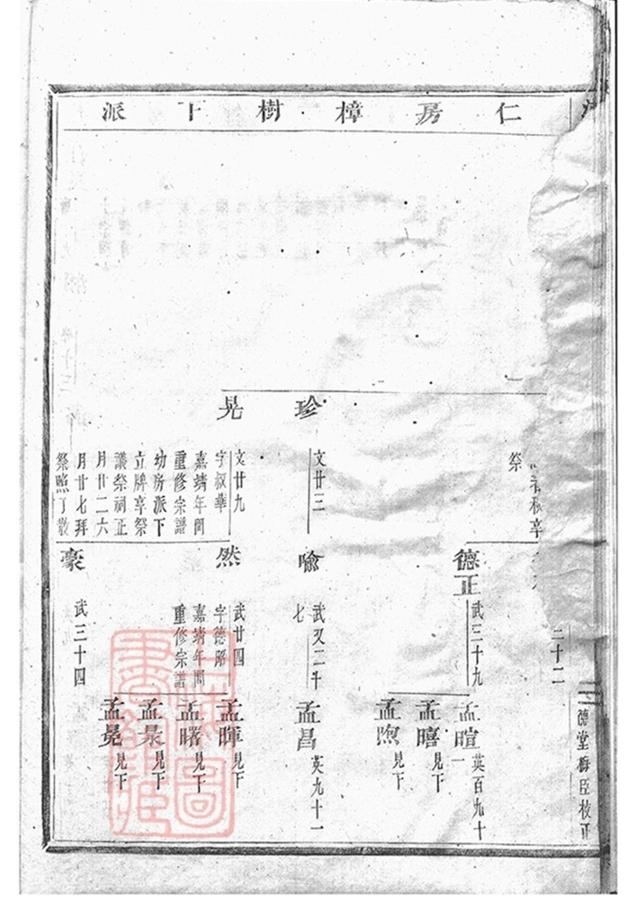 仁房樟樹下派
祭
二十二
德堂
臣校正
德正
武三十九
孟暄
英百九十一
孟暿
見下
孟煦
見下
珍
文廿三
喻
武又二千七
孟昌
英九十一
晃
文廿九
字叔華
嘉靖年間
重修宗譜
幼房派下
立牌享祭
議祭祠正
月廿二六
月廿七拜
祭照丁散
然
武廿四
字德昭
嘉靖年間
重修宗譜
孟暉
見下
孟曙
見下
孟景
見下
孟晃
見下
豪
武三十四